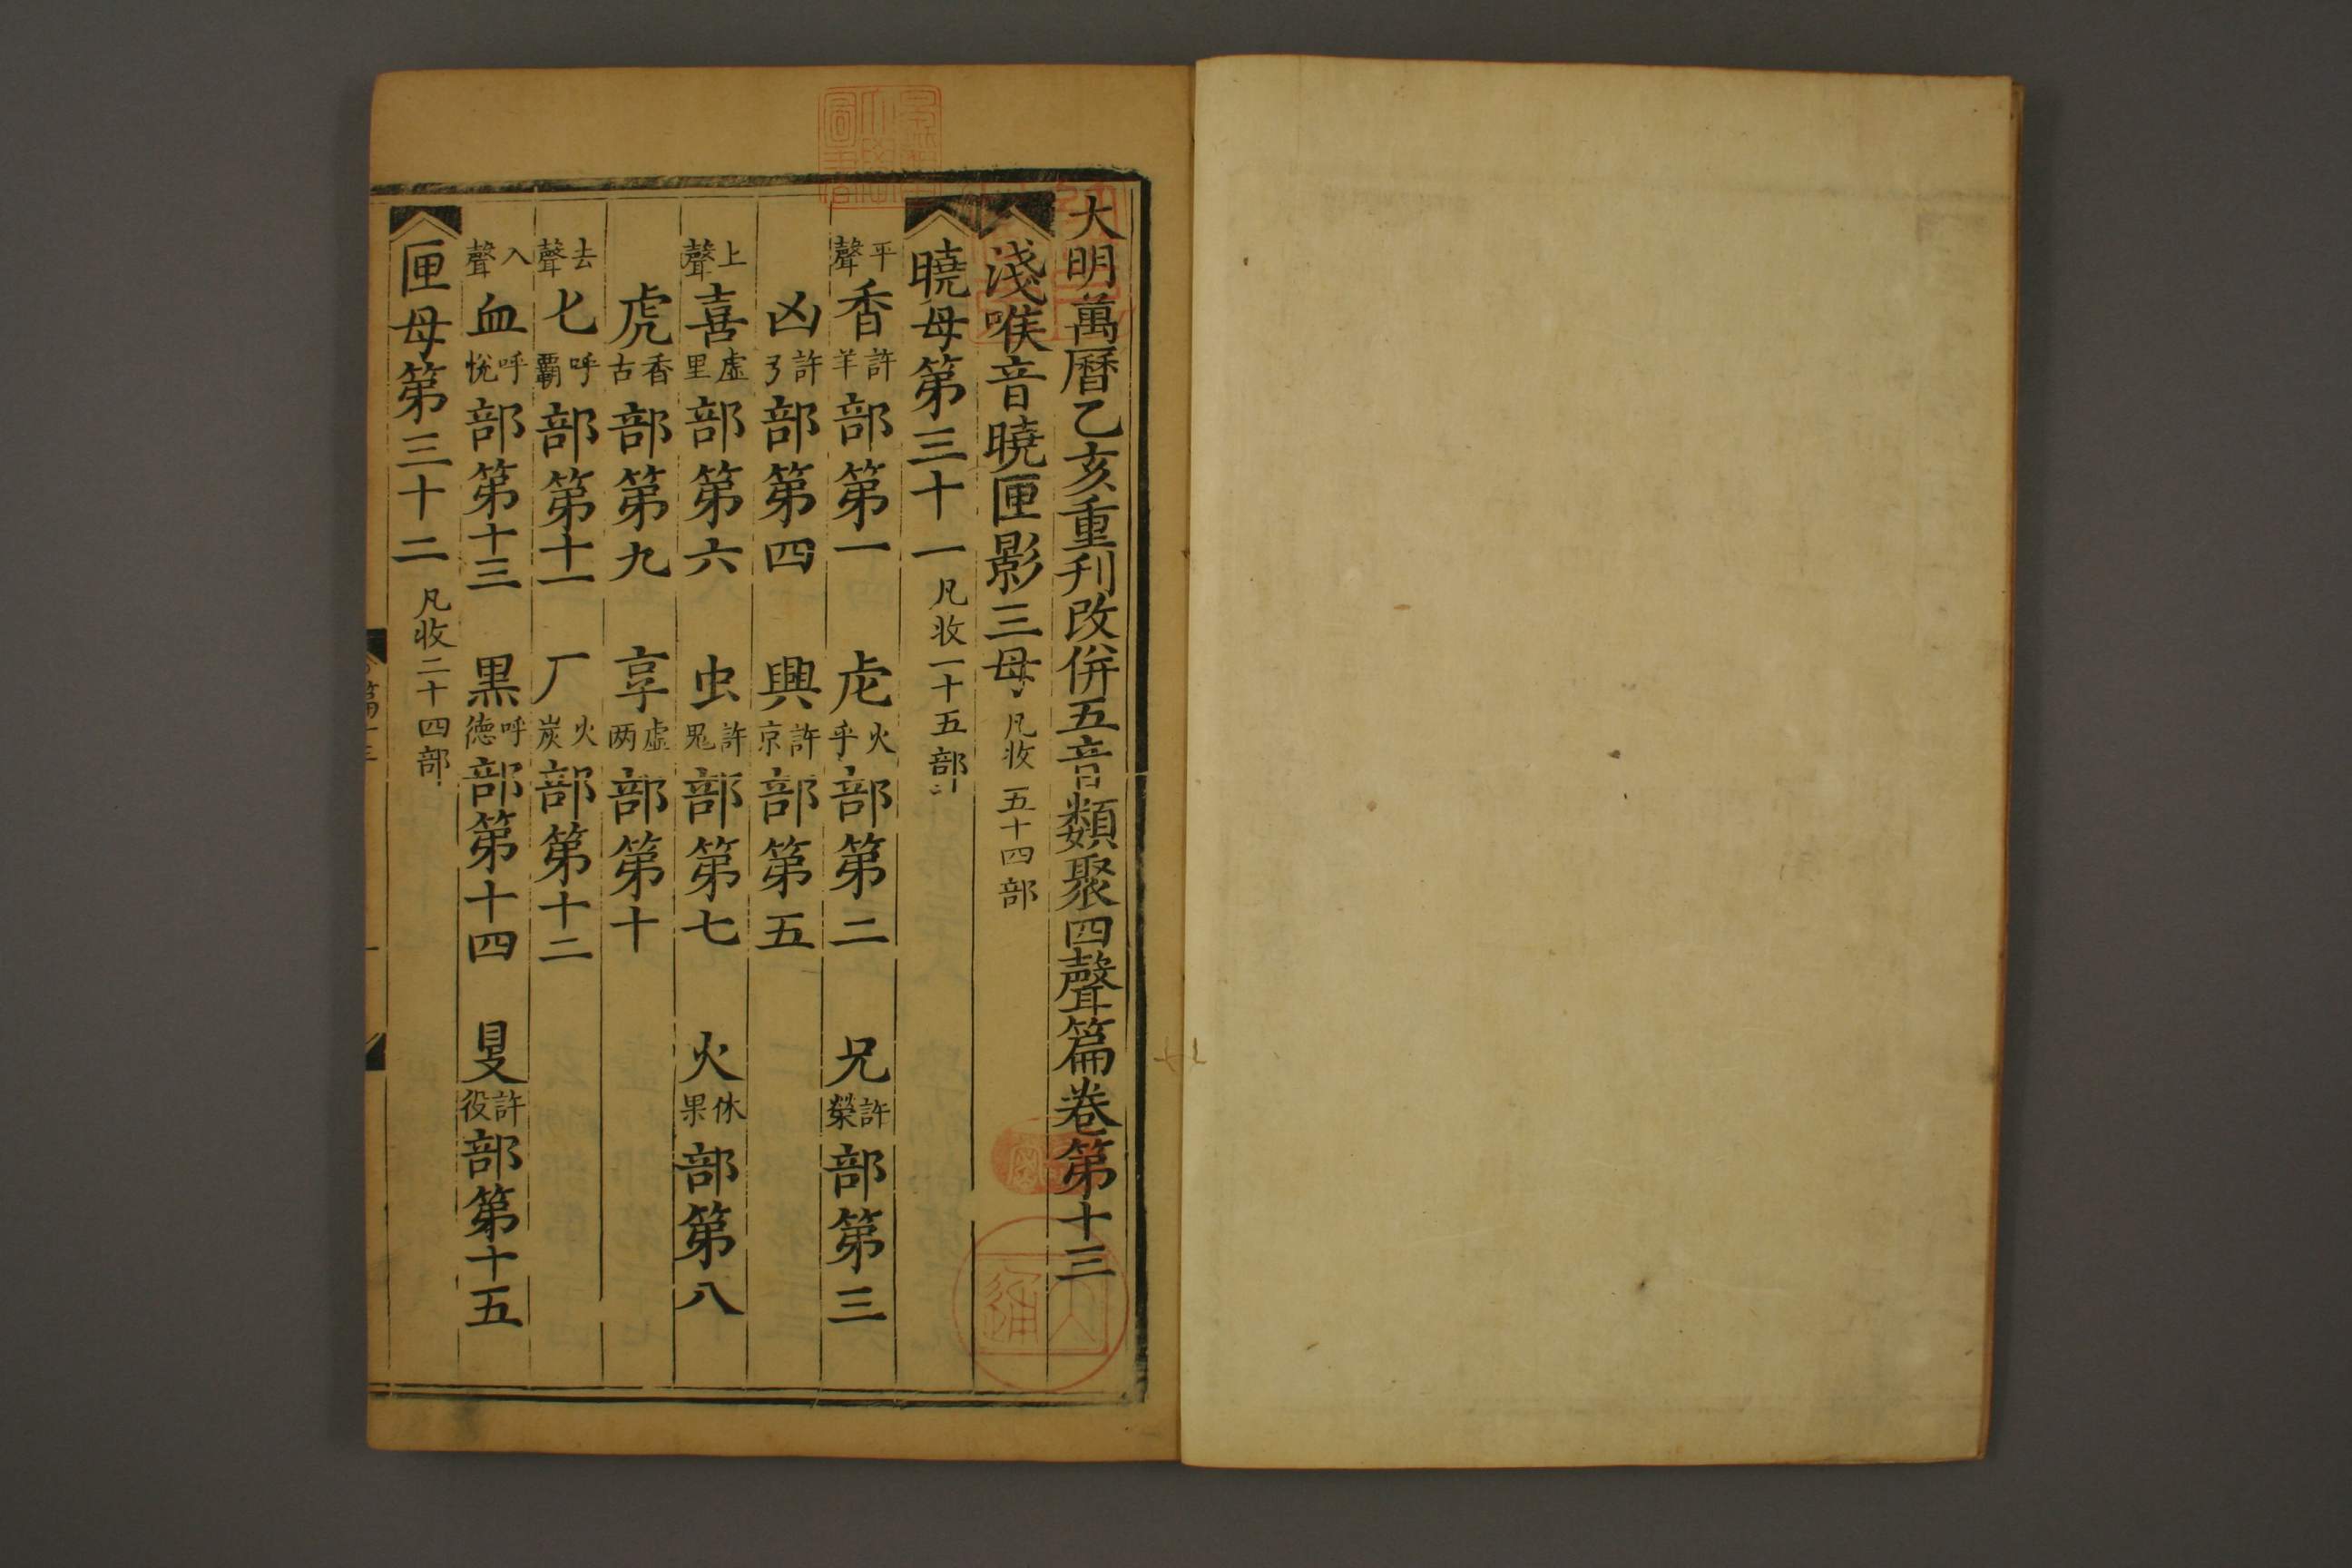 大明萬曆乙亥重刊改併五音類聚四聲篇卷第十三
淺喉音曉匣影三母凡收五十四部
曉母第三十一凡收一十五部
平聲香許羊部第一 虍火乎部第二 兄許榮部第三
凶許弓部第四 興許京部第五
上聲喜虛里部第六 虫許鬼部第七 火休果部第八
虎香古部第九 享虛两部第十
去聲𠤎呼霸部第十一 厂火炭部第十二
入聲血呼悅部第十三 黒呼德部第十四 𥄎許役部第十五
匣母第三十二凡收二十四部